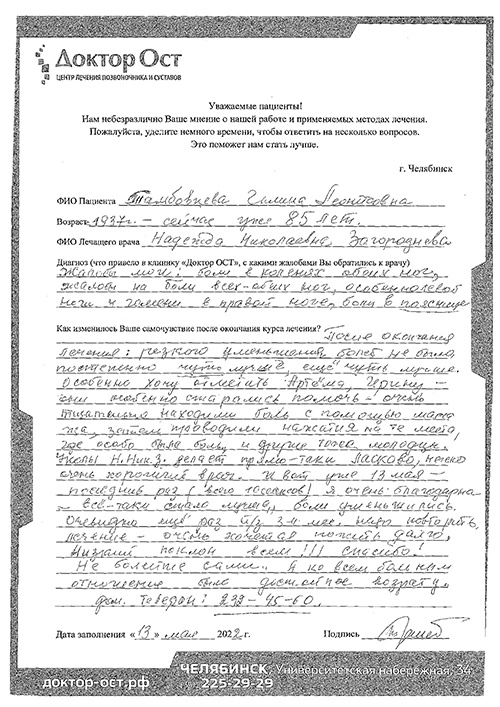 Доктор Ост
ЦЕНТР ЛЕЧЕНИЯ ПОЗВОНОЧНИКА И СУСТАВОВ
Уважаемые пациенты!
Нам небезразлично Ваше мнение о нашей работе и применяемых методах лечения.
Пожалуйста, уделите немного времени, чтобы ответить на несколько вопросов.
Это поможет нам стать лучше.
г. Челябинск
ФИО Пациента Тамбовцева Галина Леонтьевна
Возраст 1937г. – сейчас уже 85 лет.
ФИО Лечащего врача Надежда Николаевна Загороднева
Диагноз (что привело в клинику «Доктор ОСТ», с какими жалобами Вы обратились к врачу)
Жалобы мои: боли в коленях обоих ног,
жалобы на боли всех обоих ног, особенно левой
ноги и голени в правой ноге, боли в пояснице
Как изменилось Ваше самочувствие после окончания курса лечения? После окончания
лечения: резкого уменьшения болей не было,
постепенно чуть лучше, ещё чуть лучше.
Особенно хочу отметить Артёма, Ирину –
они особенно старались помочь – очень
тщательно находили боль с помощью масса
жа, затем проводили нажатия на те места,
где особо была боль, и другие тоже молодцы.
Уколы Н.Ник.З. делает прямо-таки ласково,
очень хороший врач. И вот уже 13 мая –
последний раз (всего 10 сеансов) я очень благодарна
– всё-таки стало лучше, боли уменьшились.
Очевидно ещё раз ч/з 3-и мес. надо повторить
лечение – очень хочется пожить долго,
Низкий поклон всем!!! Спасибо!
Не болейте сами. Ко всем больным
отношение было достойное возрасту.
дом. телефон: 233-45-60.
Дата заполнения «13» мая 2022 г. Подпись
ЧЕЛЯБИНСК, Университетская набережная, 34
доктор-ост.рф 225-29-29